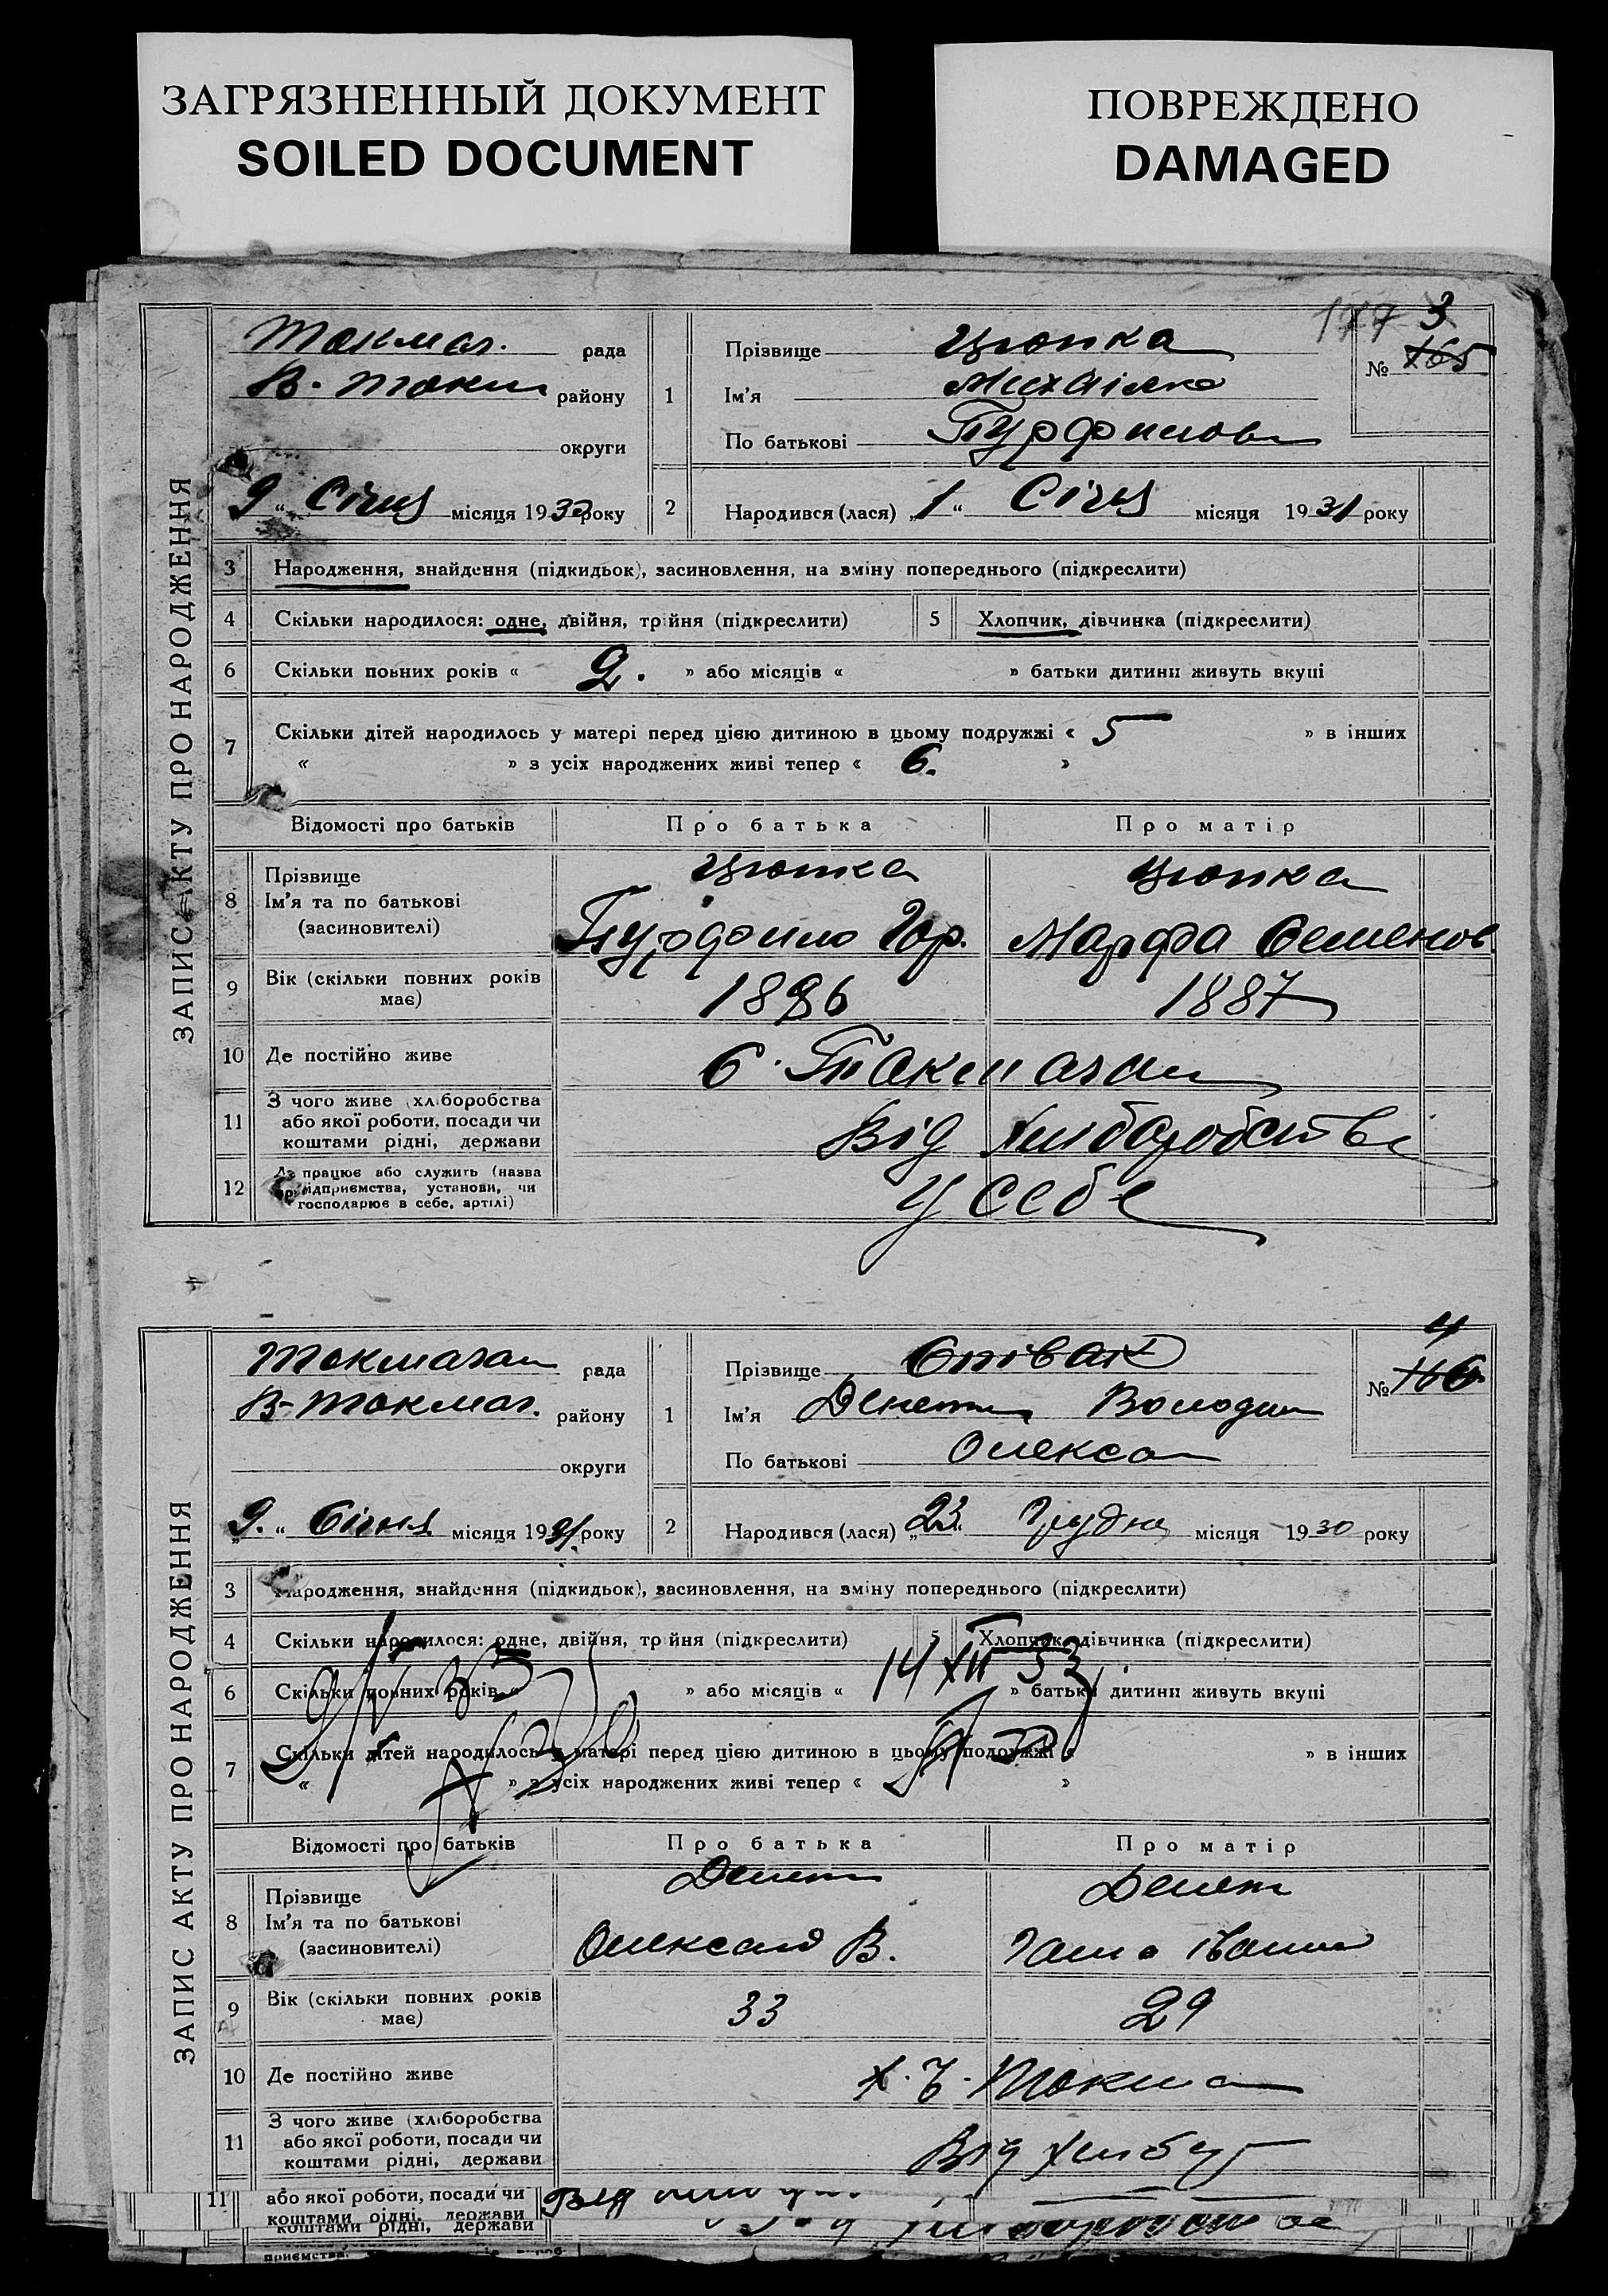 ЗАГРЯЗНЕННЫЙ ДОКУМЕНТ
SOILED DOCUMENT
ПОВРЕЖДЕНО
DAMAGED
ЗАПИС АКТУ ПРО НАРОДЖЕННЯ
Токмач. рада
В. Токм району
округи
9 " Січня місяця 193 року
1
Прізвище Цюпка
Ім'я Михайло
По батькові
3
№ 165
2 Народився (лася) „ 1 " Січня місяця 1931 року
3 Народження, знайдення (підкидьок), засиновлення, на зміну попереднього (підкреслити)
4 Скільки народилося: одне, двійня, трійня (підкреслити) 5 Хлопчик, дівчинка (підкреслити)
6 Скільки повних років « 2. » або місяців « » батьки дитини живуть вкупі
7 Скільки дітей народилось у матері перед цією дитиною в цьому подружжі « 5 » в інших
« » з усіх народжених живі тепер « 6. »
Відомості про батьків Про батька Про матір
8 Прізвище Цюпка Цюпка
Ім'я та по батькові
(засновителі) Гор. Марфа Семенов.
9 Вік (скільки повних років має) 1896 1887
10 Де постійно живе С. Токмачан
11 З чого живе (хліборобства
або якої роботи, посади чи
коштами рідні, держави Від
12 Де працює або служить (назва
підприємства, установи, чи
господарює в себе, артілі) У себе
ЗАПИС АКТУ ПРО НАРОДЖЕННЯ
Токмачан рада
В-Токмач. району
округи
9. " Січня місяця 1931 року
1
Прізвище Співак
Ім'я Володим
По батькові Олекса
4
№ 166
2 Народився (лася) „ 23 " Грудня місяця 1930 року
3 Народження, знайдення (підкидьок), засиновлення, на зміну попереднього (підкреслити)
4 Скільки народилося: одне, двійня, трійня (підкреслити) 5 Хлопчик, дівчинка (підкреслити)
14 XII 53
6 Скільки повних років « » або місяців « » батьки дитини живуть вкупі
7 Скільки дітей народилось у матері перед цією дитиною в цьому подружжі « » в інших
« » з усіх народжених живі тепер « »
Відомості про батьків Про батька Про матір
8 Прізвище
Ім'я та по батькові
(засиновителі) В.
9 Вік (скільки повних років має) 33 29
10 Де постійно живе Токма
11 З чого живе (хліборобства
або якої роботи, посади чи
коштами рідні, держави Від
11 або якої роботи, посади чи
коштами рідні, держави
коштами рідні, держави